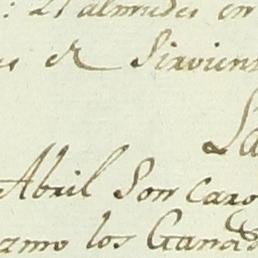 : 21 almudes en
es el Sirvien
La
Abril Son Caro
amo los Ganad